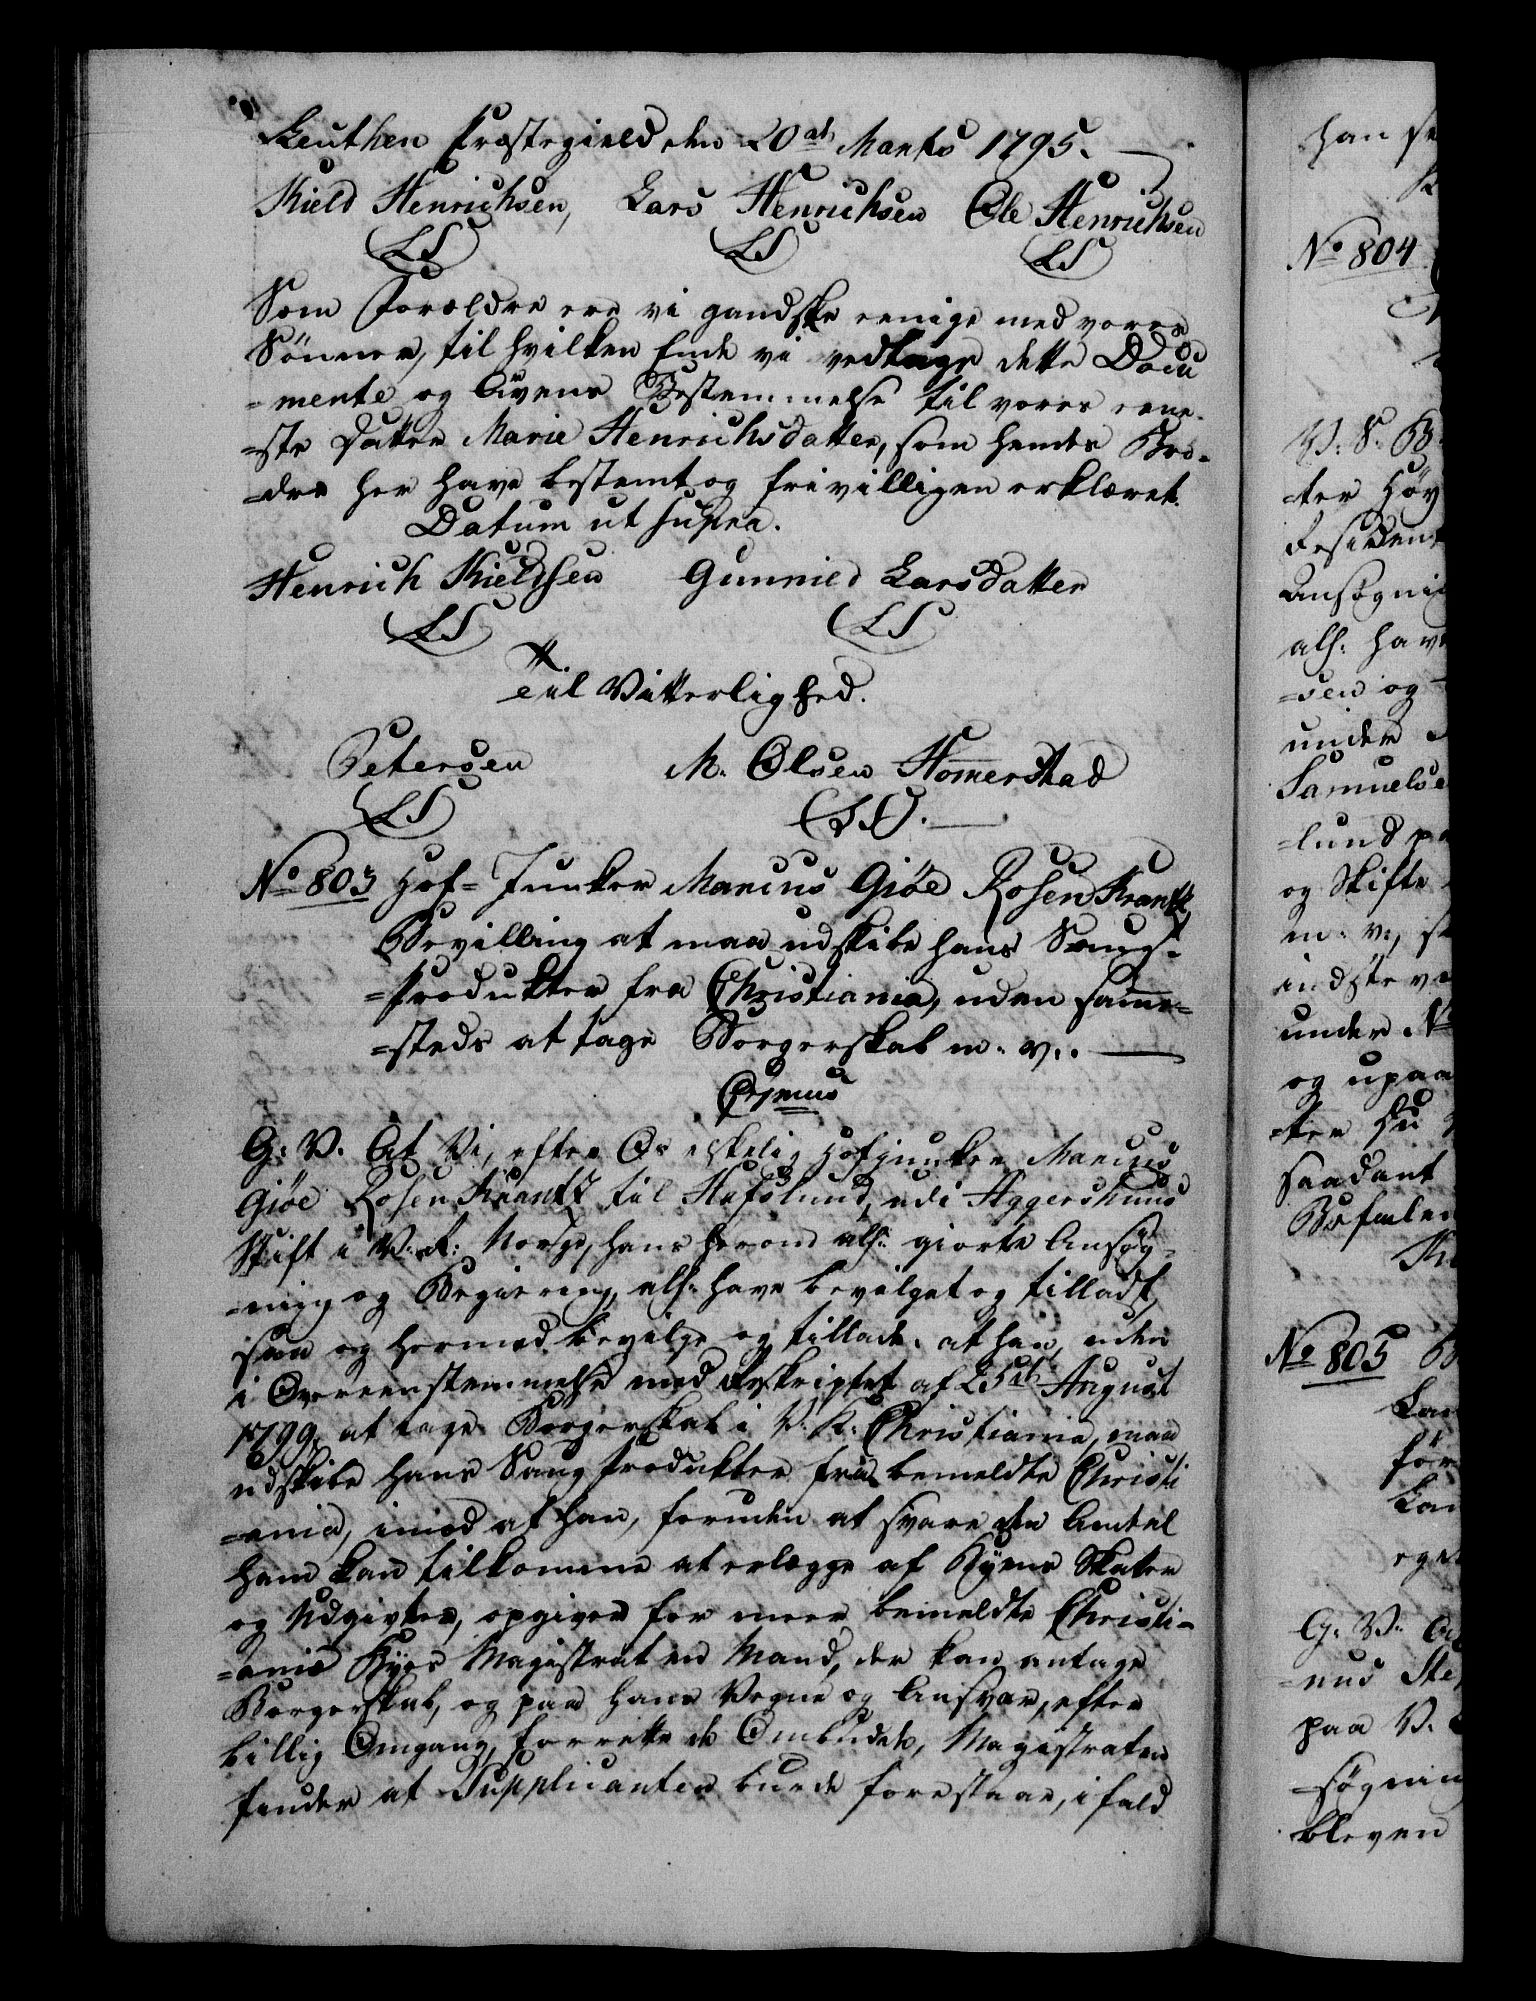 Leuthen Præstegield den 20de Martj 1795.
Kield Henrichsen, Lars Henrichsen Ole Henrichsen
LS LS LS
Som Forældre ere vi gandske eenige med vores
Sönner, til hvilken Ende vi vedtage dette Docu
=mente og Ævens Bestemmelse til vores eene-
=ste Datter Marie Henrichsdatter, som hendes Brö-
=dre her have bestemt og frivilligen erklæret.
Datum ut supra.
Henrich Kieldsen Gunnild Larsdatter
LS LS
Til Vitterlighed.
Petersen M. Olsen Homerstad
LS LS.
No 803 Hof-Junker Marcus Giöe Rosenkrantz
Bevilling at maa udskibe hans Saugs-
=Produkter fra Christiania, uden samme-
=steds at tage Borgerskab m. v.
Crsmus
G: V. At Vi, efter Os elskelig Hofjunker Marcus
Giöe Rosenkrantz til Hafslund, udi Aggershuus
Stift i V: R: Norge, hans herom alf: giorte Ansög-
=ning og Begiering, alf: have bevilget og tilladt,
saa og hermed bevilge og tillade, at han, uden
i Overeenstemmelse med Reskriptet af 25de August
1799, at tage Borgerskab i V. K: Christiania, maa
udskibe hans Saug Produkter fra bemeldte Christi
=ania, imod at han, foruden at svare den Andeel
ham kan tilkomme at erlægge af Byens Skatter
og Udgivter, opgiver for meer bemeldte Christi-
=ania Byes Magistrat en Mand, der kan antage
Borgerskab, og paa hans Vegne og Ansvar, efter
billig Omgang, forrette de Ombuder, Magistraten
finder at Supplicanten burde forestaae, i fald
han
No 804
V: S: B
=ter Höy
Resident
Ansögni
alf: hav
=sen og
under
Samuelse
=lund p
og Skifte
m: v:, s
indsteve
under No
og upaa
=ter Hu
saadant
Befalen
No 805
Lar
for
Lan
ege
G: V:
=nus Ste
paa V.
=sögning
bleven